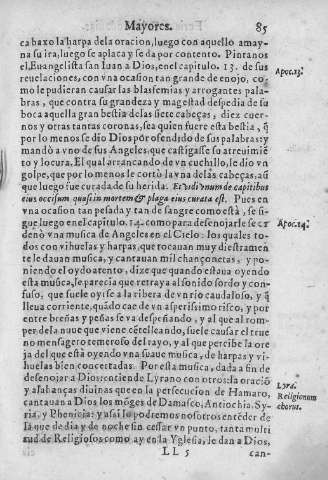 Mayores. 85
ca baxo la harpa de la oracion, luego con aquello amay-
na su ira, luego se aplaca y se da por contento. Pintanos
el Euangelista san Iuan a Dios, en el capitulo. 13. de sus
Apoc.13.
reuelaciones, con vna ocasion tan grande de enojo, co-
mo le pudieran causar las blasfemias y arrogantes pala-
bras, que contra su grandeza y magestad despedia de su
boca aquella gran bestia de las siete cabeças, diez cuer-
nos y otras tantas coronas, sea quien fuere esta bestia, q̃
por lo menos se dio Dios por ofendido de sus palabras: y
mandò a vno de sus Angeles, que castigasse su atreuimiẽ
to y locura. El qual arrancando de vn cuchillo, le dio vn
golpe, que por lo menos le cortò la vna de las cabeças, aũ
que luego fue curada de su herida. Et vidi vnum de capitibus
eius occisum quasi in mortem & plaga eius curata est. Pues en
vna ocasion tan pesada y tan de sangre como està, se si-
gue luego en el capitulo. 14. como para desenojarle se or
Apoc.14.
denò vna musica de Angeles en el Cielo: los quales to-
dos con vihuelas y harpas, que tocauan muy diestramen
te le dauan musica, y cantauan mil chançonetas, y po-
niendo el oydo atento, dize que quando estaua oyendo
esta musica, le parecia que retraya al sonido sordo y con-
fuso, que suele oyrse a la ribera de vn rio caudaloso, y q̃
lleua corriente, quãdo cae de vn asperissimo risco, y por
entre breñas y peñas se va despeñando, y al que al rom-
per de la nuue que viene cẽtelleando, suele causar el true
no mensagero temeroso del rayo, y al que percibe la ore
ja del que està oyendo vna suaue musica, de harpas y vi-
huelas bien concertadas. Por esta musica, dada a fin de
desenojar a Dios: entiende Lyrano con otros: la oraciõ
y alabanças diuinas que en la persecucion de Hamaro,
Lyra.
Religionum
chorus.
cantauan a Dios los mõges de Damasco, Antiochia, Sy-
ria, y Phenicia: y assi lo podremos nosotros entẽder de
la que de dia y de noche sin cessar vn punto, tanta multi
tud de Religiosos como ay en la Yglesia, le dan a Dios,
LL 5 can-